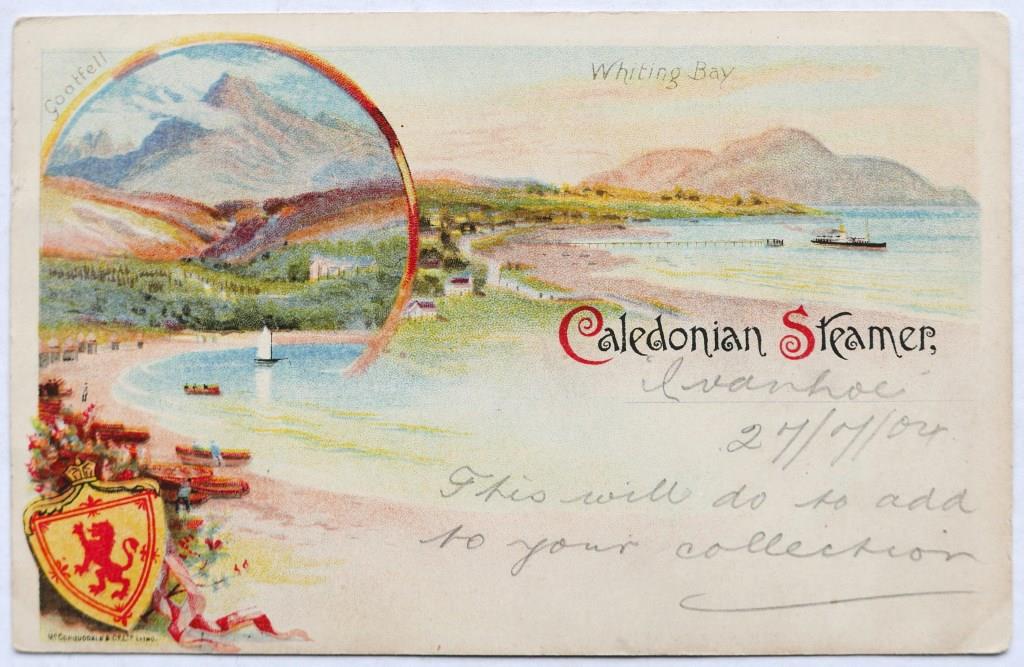 Goatfell
Whiting Bay
Caledonian Steamer,
"Ivanhoe"
27/7/04.
This will do to add
to your collection
McCorquodale & Co. Ltd Litho.